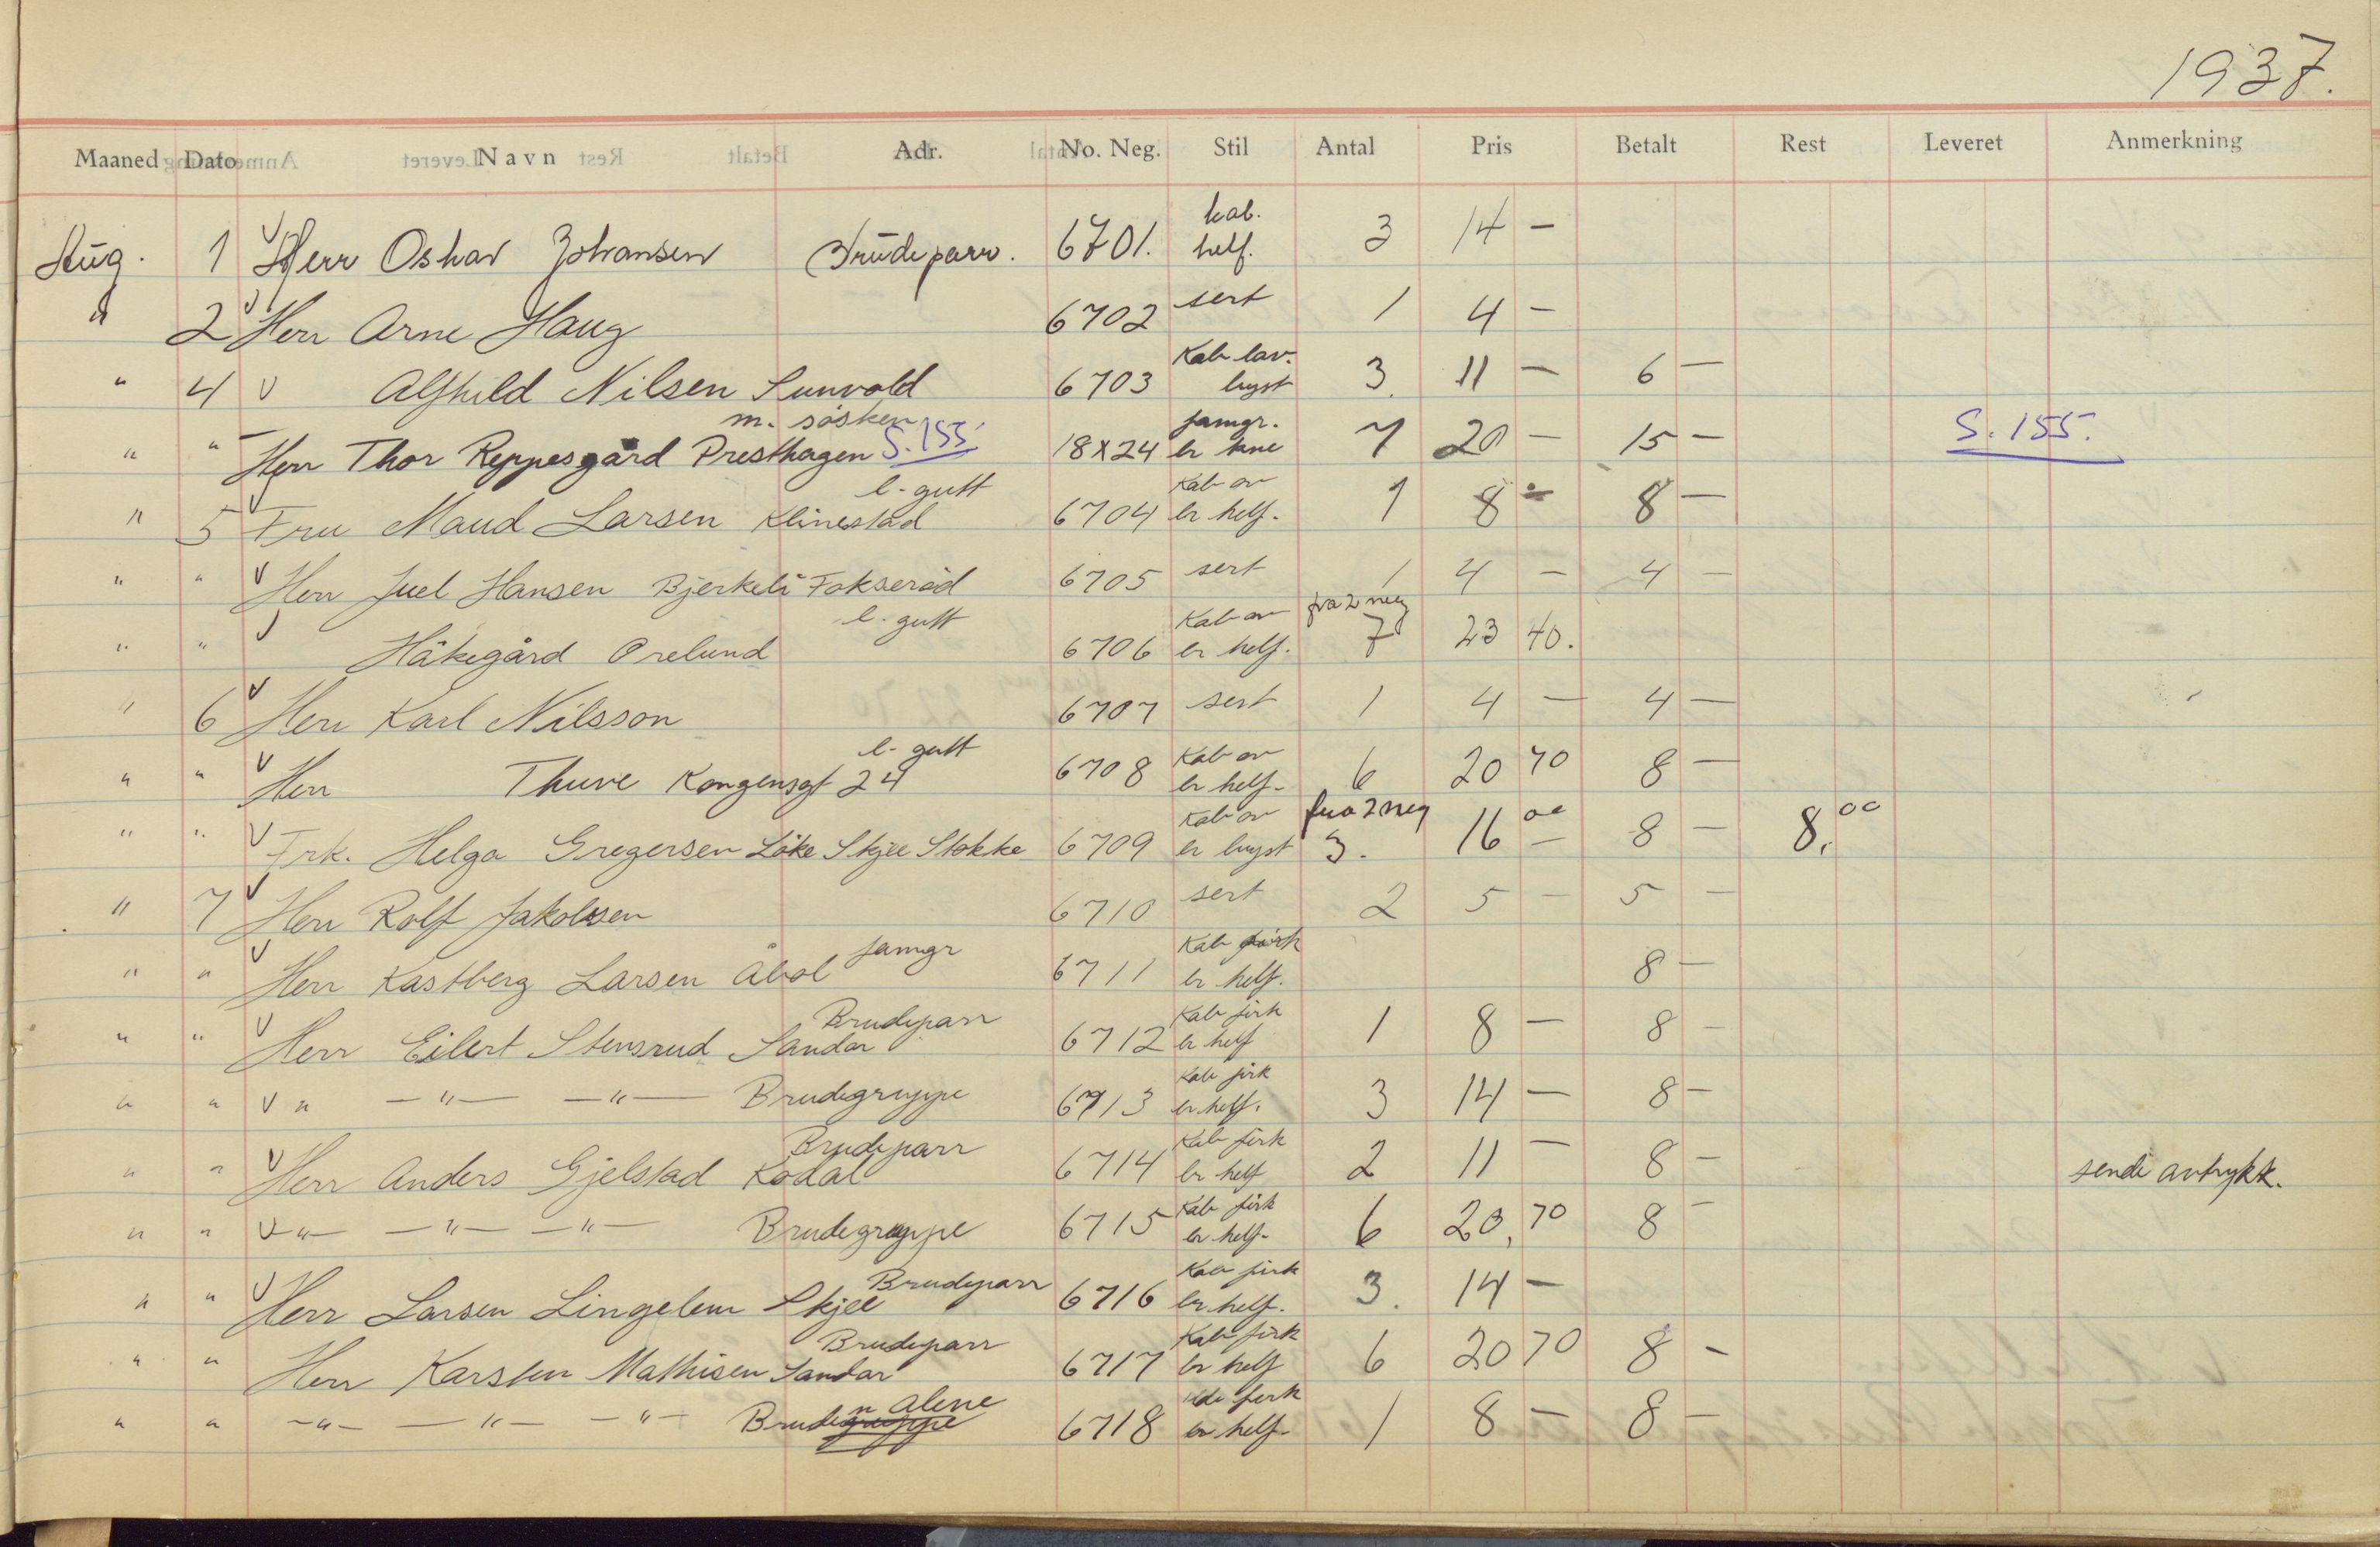 1937.
Maaned Dato Navn Adr. No. Neg. Stil Antal Pris Betalt Rest Leveret Anmerkning
kab.
Aug. 1 V Herr Oskar Johansen Brudeparr. 6701. helf. 3 14 -
" 2 V Herr Arne Haug 6702 sert 1 4 -
Kab lav.
" 4 V Alfhild Nilsen Sunvold 6703 bryst 3. 11 - 6 -
m. søsken famgr.
" " Herr Thor Reppesgård Presthagen S. 155 18X24 er kne 7 20 - 15 - S. 155.
l. gutt Kab av
" 5 V Fru Maud Larsen Klinestad 6704 er helf. 1 8 - 8 -
" " V Herr Juel Hansen Bjerkeli Fokserød 6705 sert 1 4 - 4 -
l. gutt Kab av fra 2 neg
" " V Håkegård Orelund 6706 er helf. 7 23 40.
" 6 V Herr Karl Nilsson 6707 sert 1 4 - 4 -
l. gutt Kab av
" " V Herr Thuve Kongensgt 24 6708 er helf. 6 20 70 8 -
Kab av fra 2 neg
" " V Frk. Helga Gregersen Løke Skjee Stokke 6709 er bryst 3. 16 00 - 8 - 8.00
" 7 V Herr Rolf Jakobsen 6710 sert 2 5 - 5 -
famgr Kab firk
" " V Herr Kastberg Larsen Åbol 6711 er helf. 8 -
Brudeparr Kab firk
" " V Herr Eilert Stensrud Sandar 6712 er helf 1 8 - 8 -
Kab firk
" " V " - " - - " - Brudegruppe 6713 er helf. 3 14 - 8 -
Brudeparr Kab firk
" " V Herr Anders Gjelstad Kodal 6714 er helf 2 11 - 8 - sende avtrykk.
Kab firk
" " V - " - - " - - " - Brudegruppe 6715 er helf. 6 20, 70 8 -
Brudeparr Kab firk
" " V Herr Larsen Lingelem Skjee 6716 er helf. 3. 14 -
Brudeparr Kab firk
" " Herr Karsten Mathisen Sandar 6717 er helf 6 20 70 8 -
n alene Kab firk
" " - " - - " - - " - Brudegruppe 6718 er helf. 1 8 - 8 -